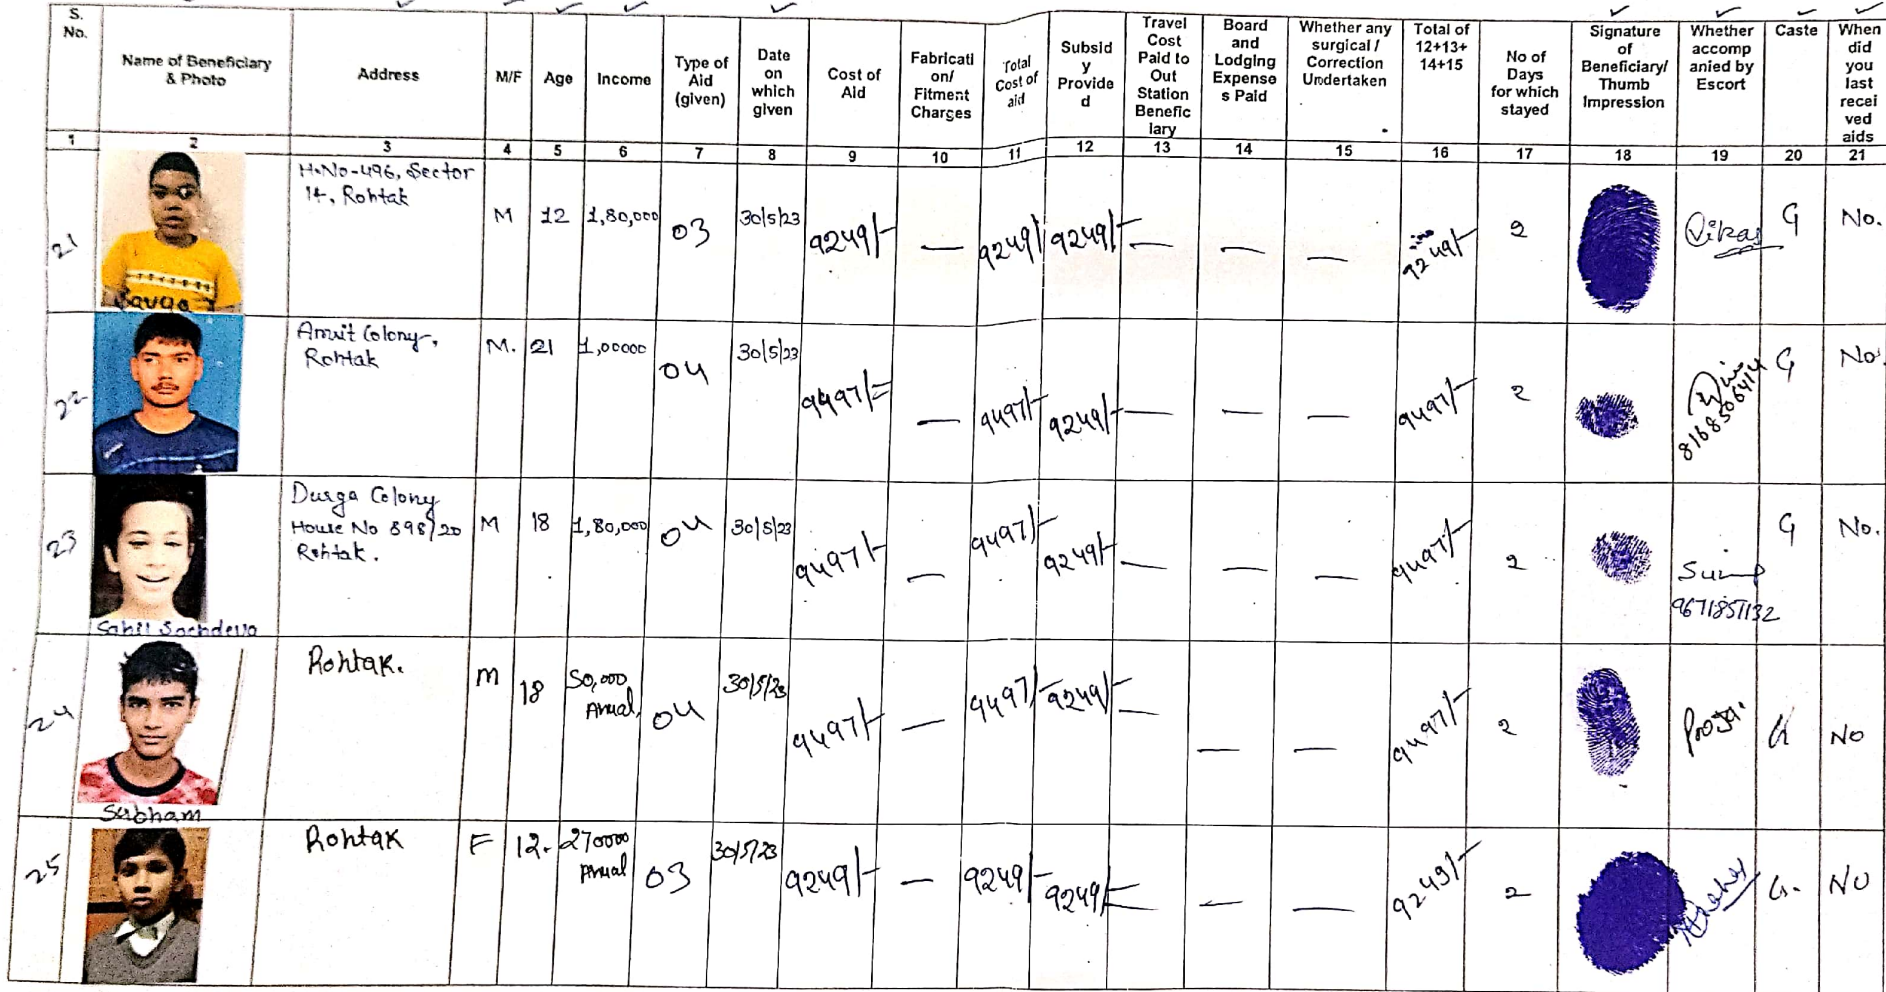 S. No.
Name of Beneficiary & Photo
Address
M/F
Age
Income
Type of Aid (given)
Date on which given
Cost of Aid
Fabricati on/ Fitment Charges
Total Cost of aid
Subsid y Provide d
Travel Cost Paid to Out Station Benefic iary
Board and Lodging Expense s Paid
Whether any surgical / Correction Undertaken
Total of 12+13+ 14+15
No of Days for which stayed
Signature of Beneficiary/ Thumb Impression
Whether accomp anied by Escort
Caste
When did you last recei ved aids
1 2 3 4 5 6 7 8 9 10 11 12 13 14 15 16 17 18 19 20 21
21 H.No-496, Sector M 12 1,80,000 03 30/5/23 9249/- — 9249/- 9249/- — — — 9249/- 2 Vikas G No.
14, Rohtak
22 Amrit Colony, M. 21 1,00000 04 30/5/23 9497/= — 9497/- 9249/- — — — 9497/- 2 8168506414 G No.
Rohtak
23 Durga Colony M 18 1,80,000 04 30/5/23 9497/- — 9497/- 9249/- — — — 9497/- 2 G No.
House No 898/20
Rohtak.
9671851132
Sahil Sachdeva
24 Rohtak. M 18 50,000 04 30/5/23 9497/- — 9497/- 9249/- — — — 9497/- 2 G No
Anual
Subham
25 Rohtak F 12. 270000 03 30/5/23 9249/- — 9249/- 9249/- — — — 9249/- 2 G. NO
Anual